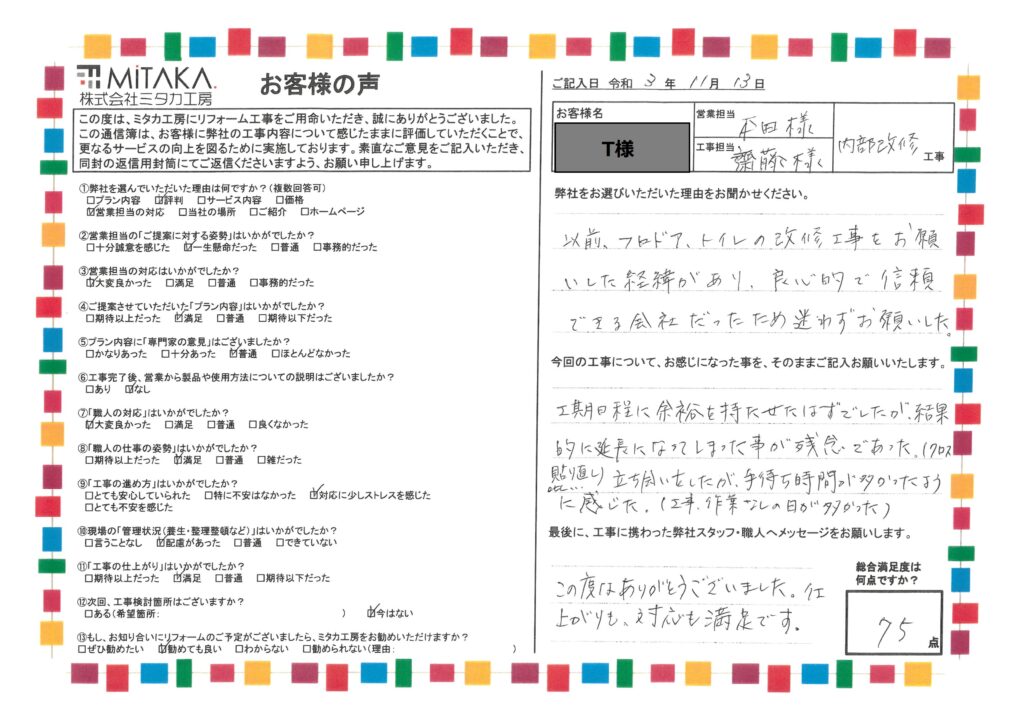 MiTAKA.
株式会社ミタカ工房
お客様の声
この度は、ミタカ工房にリフォーム工事をご用命いただき、誠にありがとうございました。
この通信簿は、お客様に弊社の工事内容について感じたままに評価していただくことで、
更なるサービスの向上を図るために実施しております。素直なご意見をご記入いただき、
同封の返信用封筒にてご返信くださいますよう、お願い申し上げます。
①弊社を選んでいただいた理由は何ですか？(複数回答可)
□プラン内容 ☑評判 □サービス内容 □価格
☑営業担当の対応 □当社の場所 □ご紹介 □ホームページ
②営業担当の「ご提案に対する姿勢」はいかがでしたか？
□十分誠意を感じた ☑一生懸命だった □普通 □事務的だった
③営業担当の対応はいかがでしたか？
☑大変良かった □満足 □普通 □事務的だった
④ご提案させていただいた「プラン内容」はいかがでしたか？
□期待以上だった ☑満足 □普通 □期待以下だった
⑤プラン内容に「専門家の意見」はございましたか？
□かなりあった □十分あった ☑普通 □ほとんどなかった
⑥工事完了後、営業から製品や使用方法についての説明はございましたか？
□あり ☑なし
⑦「職人の対応」はいかがでしたか？
☑大変良かった □満足 □普通 □良くなかった
⑧「職人の仕事の姿勢」はいかがでしたか？
□期待以上だった ☑満足 □普通 □雑だった
⑨「工事の進め方」はいかがでしたか？
□とても安心していられた □特に不安はなかった ☑対応に少しストレスを感じた
□とても不安を感じた
⑩現場の「管理状況(養生・整理整頓など)」はいかがでしたか？
□言うことなし ☑配慮があった □普通 □できていない
⑪「工事の仕上がり」はいかがでしたか？
□期待以上だった ☑満足 □普通 □期待以下だった
⑫次回、工事検討箇所はございますか？
□ある(希望箇所: ) ☑今はない
⑬もし、お知り合いにリフォームのご予定がございましたら、ミタカ工房をお勧めいただけますか？
□ぜひ勧めたい ☑勧めても良い □わからない □勧められない(理由: )
ご記入日 令和 3 年 11 月 13 日
お客様名
T様
営業担当
本田様
工事担当
齋藤様
内部改修 工事
弊社をお選びいただいた理由をお聞かせください。
以前、フロドア、トイレの改修工事をお願
いした経緯があり、良心的で信頼
できる会社だったため迷わずお願いした。
今回の工事について、お感じになった事を、そのままご記入お願いいたします。
工期日程に余裕を持たせたはずでしたが、結果
的に延長になってしまった事が残念であった。(クロス
貼り直し 立ち合いをしたが、手待ち時間が多かったよう
に感じた。(工事、作業なしの日が多かった)
最後に、工事に携わった弊社スタッフ・職人へメッセージをお願いします。
この度はありがとうございました。仕
上がりも、対応も満足です。
総合満足度は
何点ですか？
75 点